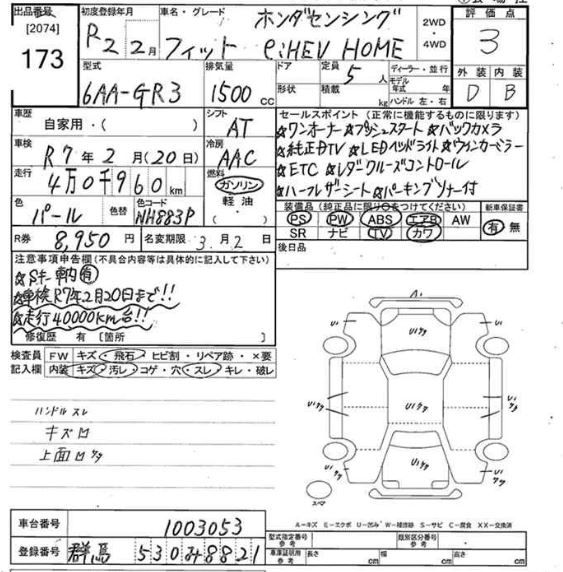 出品番号 初度登録年月 車名・グレード ホンダセンシング 2WD ・ 4WD 評価点
[2074] 173 R2 2月 フィット e:HEV HOME 3
型式 排気量 ドア 定員 5人 ディーラー・並行 外装 内装
6AA-GR3 1500cc 形状 積載 kg モデル年式 年 ハンドル 左・右 D B
車歴 自家用・( ) シフト AT セールスポイント (正常に機能するものに限ります)
☆ワンオーナー ☆プッシュスタート ☆バックカメラ
車検 R7年2月(20日) 冷房 AAC ☆純正DTV ☆LEDヘッドライト ☆ウインカーミラー
走行 4万0千960km 燃料 ガソリン 軽油 ・ ☆ETC ☆レーダークルーズコントロール
☆ハーフレザーシート ☆パーキングソナー付
色 パール 色替 色コード NH883P 装備品 (純正品に限り○をつけてください) 新車保証書
PS PW ABS エアB AW 有・無
SR ナビ TV カワ
R券 8,950円 名変期限 3月2日 後日品
注意事項申告欄(不具合内容等は具体的に記入して下さい)
☆Sキー車内有
☆車検R7年2月20日まで!!
☆走行40000km台!!
修復歴 有 [箇所 ]
検査員記入欄 FW キズ・飛石・ヒビ割・リペア跡・×要
内装 キズ・汚レ・コゲ・穴・スレ・キレ・破レ
ハンドル スレ
キズ凹
上面凹
A1
U1 U1
U1
U1 U1 U1
U1
U1 U1
スペア
A-キズ E-エクボ U-凹み W-補修跡 S-サビ C-腐食 XX-交換済
車台番号 1003053
登録番号 群馬 530 8821
型式指定番号 参考 類別区分番号 参考
車庫証明用 参考 長さ cm 幅 cm 高さ cm